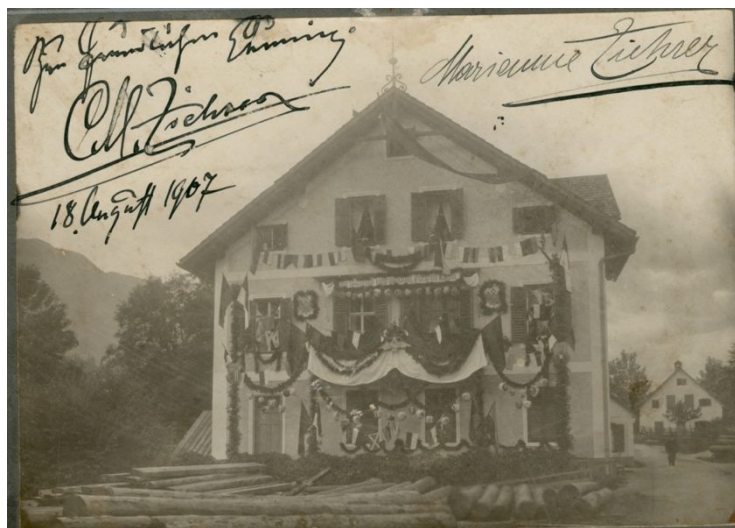 Zur freundlichen Erinnerung.
C. M. Ziehrer
18. August 1907
Marianne Ziehrer